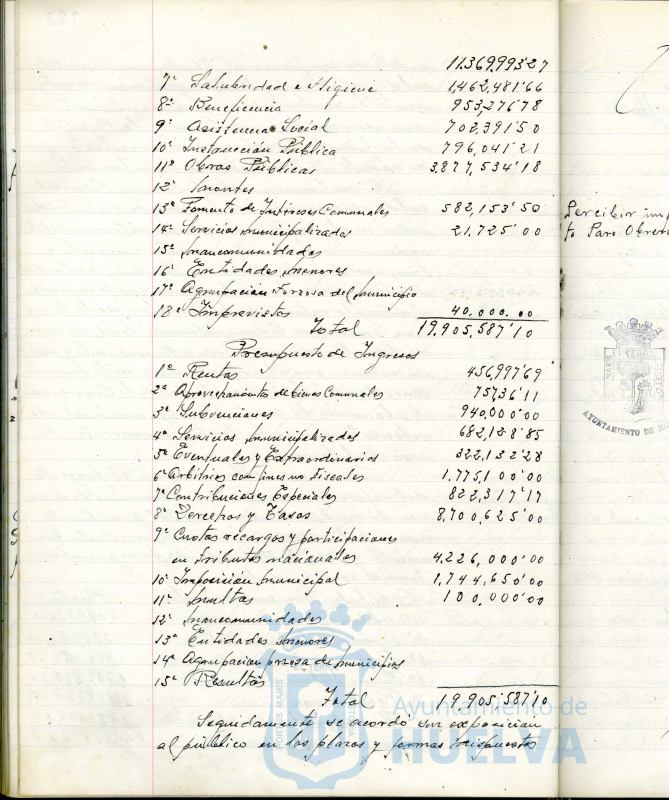 11.369,993'27
7º Salubridad e Higiene 1,462,481'66
8º Beneficencia 953,276'78
9º Asistencia Social 702,391'50
10º Instrucción Pública 796,041'21
11º Obras Públicas 3.877,534'18
12º Montes
13º Fomento de Intereses Comunales 582,153'50
14º Servicios municipalizados 21.725'00
15º Mancomunidades
16º Entidades menores
17º Agrupación Forzosa del municipio
18º Imprevistos 40.000.00
Total 19.905,587'10
Presupuesto de Ingresos
1º Rentas 456,997'69
2º Aprovechamientos de bienes Comunales 75,736'11
3º Subvenciones 940,000'00
4º Servicios municipalizados 682,128'85
5º Eventuales y Extraordinarios 322,132'28
6º Arbitrios con fines no fiscales 1.775,100'00
7º Contribuciones Especiales 822,317'17
8º Derechos y Tasas 8,700,625'00
9º Cuotas recargos y participaciones
en tributos nacionales 4.226,000'00
10º Imposición municipal 1,744,650'00
11º Multas 100,000'00
12º Mancomunidades
13º Entidades menores
14º Agrupación forzosa de municipios
15º Resultas
Total 19.905,587'10
Seguidamente se acordó su exposición
al público en los plazos y formas dispuestos
Percibir imp
to Paro Obrero
AYUNTAMIENTO DE HU
PORTUS MARIS
Ayuntamiento de
HUELVA